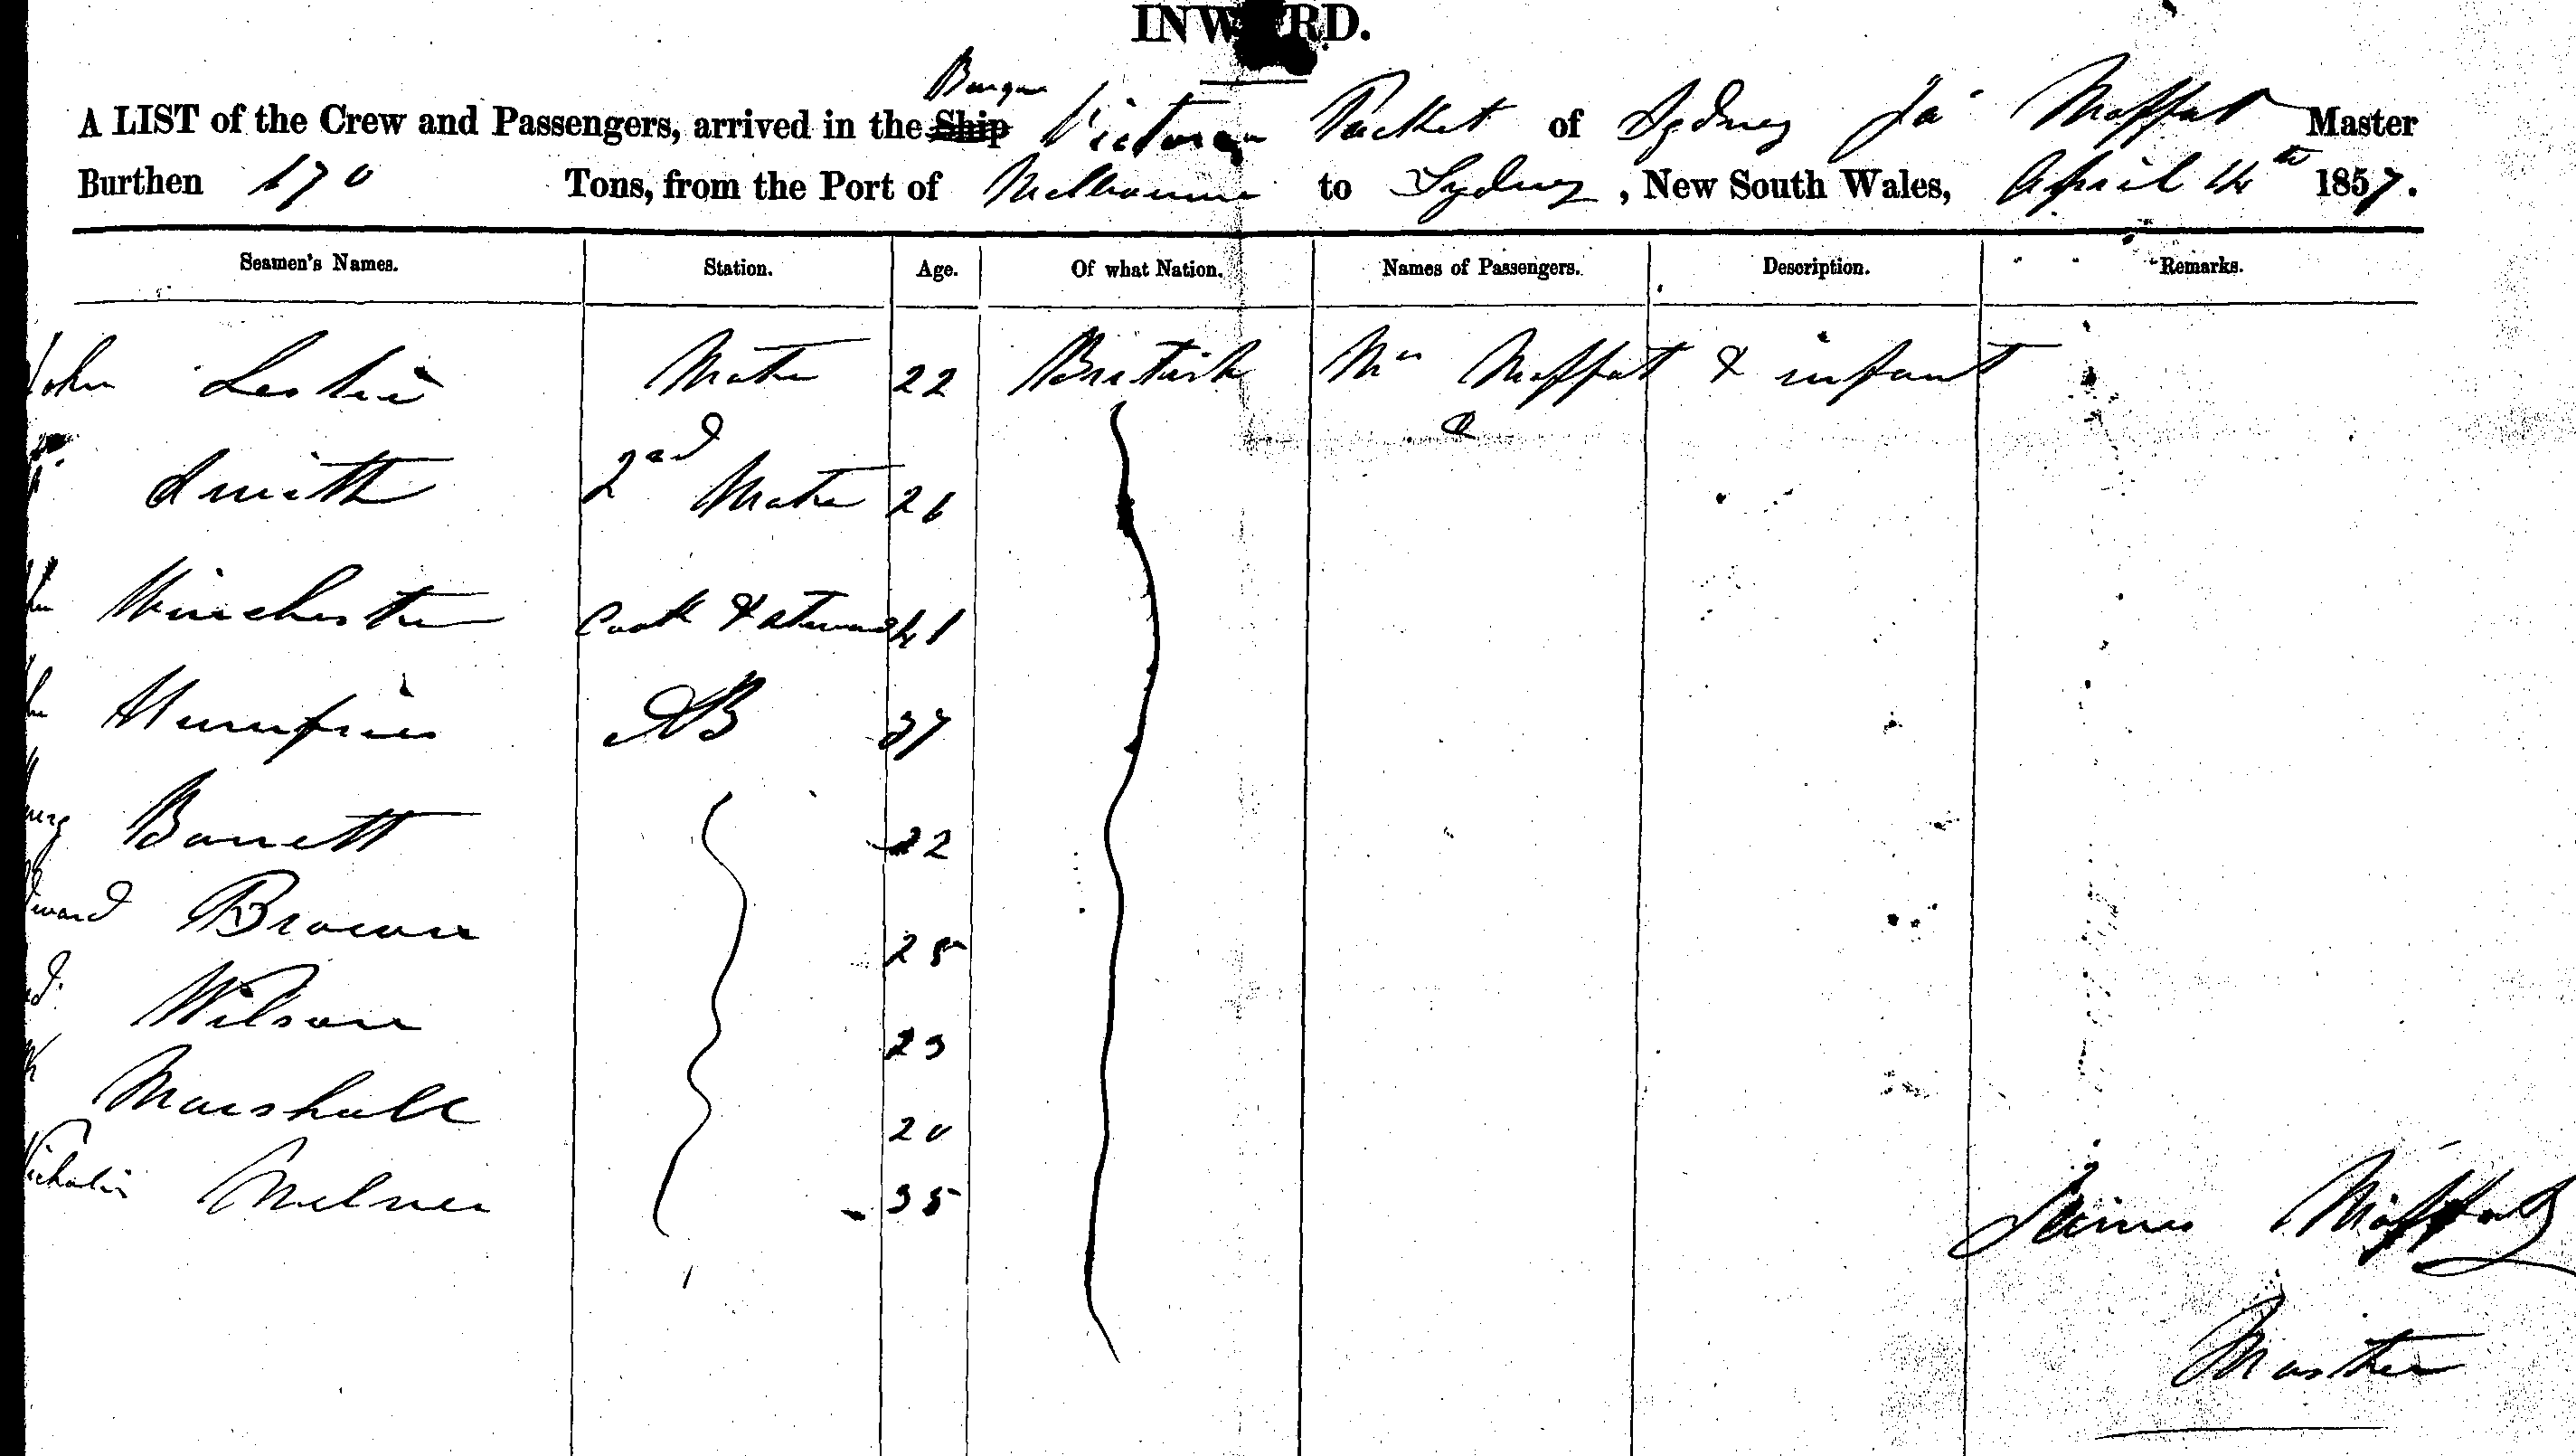 INWARD.
A LIST of the Crew and Passengers, arrived in the Ship Barque Victoria Packet of Sydney Jas Moffat Master
Burthen 170 Tons, from the Port of Melbourne to Sydney, New South Wales, April 14th 1857.
Seamen's Names. Station. Age. Of what Nation. Names of Passengers. Description. Remarks.
John Leslie Mate 22 British Mrs Moffat & infant
Smith 2nd Mate 26
Winchester Cook & Steward 41
Humfries AB 37
Barrett 22
Edward Brown 25
Wilson 23
Marshall 20
Nicholas Milner 35
James Moffat
Master